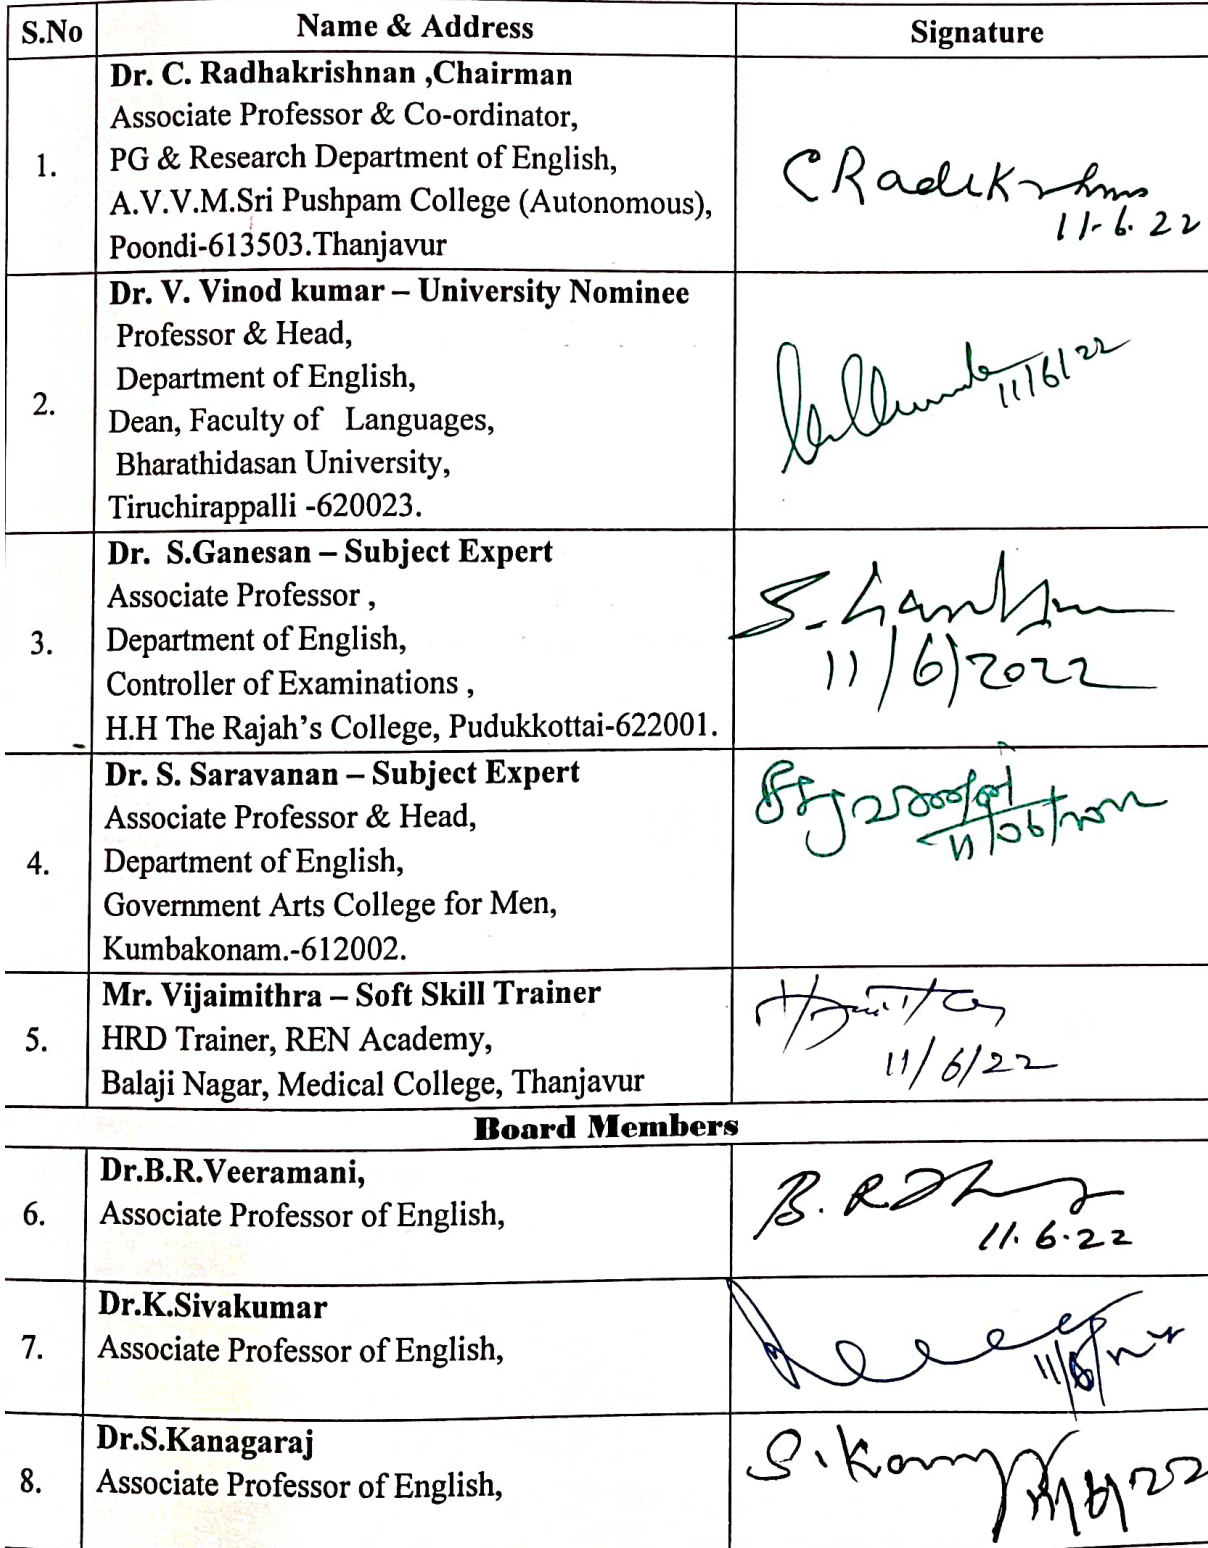 S.No Name & Address Signature
Dr. C. Radhakrishnan ,Chairman
Associate Professor & Co-ordinator,
1. PG & Research Department of English,
A.V.V.M.Sri Pushpam College (Autonomous),
Poondi-613503.Thanjavur
11.6.22
Dr. V. Vinod kumar – University Nominee
Professor & Head,
Department of English,
2. Dean, Faculty of Languages,
Bharathidasan University,
Tiruchirappalli -620023.
11/6/22
Dr. S.Ganesan – Subject Expert
Associate Professor ,
3. Department of English,
Controller of Examinations ,
H.H The Rajah's College, Pudukkottai-622001.
11/6/2022
Dr. S. Saravanan – Subject Expert
Associate Professor & Head,
4. Department of English,
Government Arts College for Men,
Kumbakonam.-612002.
Mr. Vijaimithra – Soft Skill Trainer
5. HRD Trainer, REN Academy,
Balaji Nagar, Medical College, Thanjavur
11/6/22
Board Members
Dr.B.R.Veeramani,
6. Associate Professor of English,
11.6.22
Dr.K.Sivakumar
7. Associate Professor of English,
Dr.S.Kanagaraj
8. Associate Professor of English,